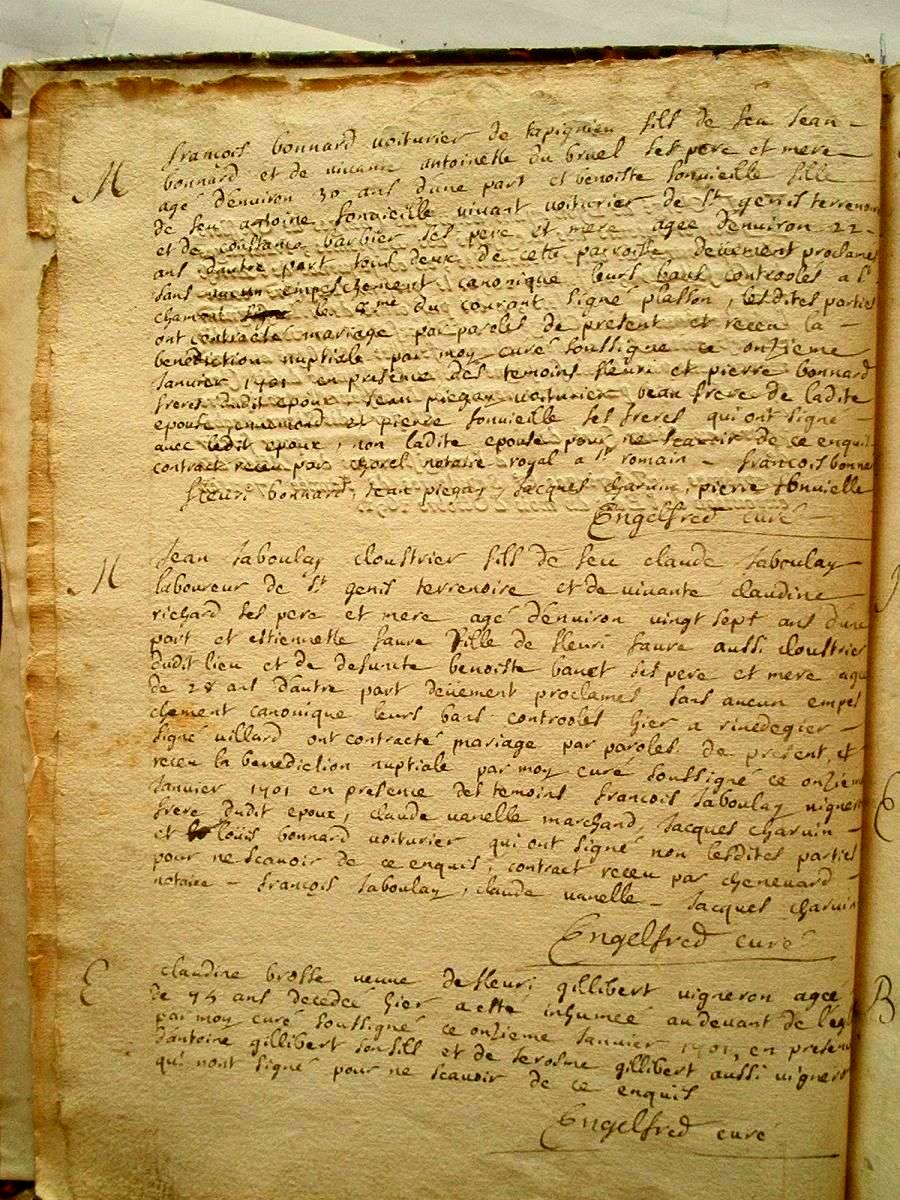 M
francois bonnard voiturier de tapignieu fils de feu Jean
bonnard et de vivante antoinette du bruel ses pere et mere
agé d'environ 30 ans d'une part et benoiste fonvieille fille
de feu antoine fonvieille vivant voiturier de St genis terrenoire
et de constance barbier ses pere et mere agee d'environ 22
ans d'autre part tous deux de cette parroisse, deüement proclamés
sans aucun empeschement canonique leurs bans controolés a St
chamont le 8me du courant signé plasson, lesdites parties
ont contracté mariage par paroles de present et receu la
benediction nuptiale par moy curé soussigné ce onzieme
Janvier 1701 en presence des temoins fleuri et pierre bonnard
freres dudit epoux, Jean piegay voiturier beau frere de ladite
epouse ennemond et pierre fonvieille ses freres qui ont signé
avec ledit epoux, non ladite epouse pour ne scavoir de ce enquis
contract receu par chorel notaire royal a St romain - francois bonne
fleuri bonnard, Jean piegay, Jacques charvin, pierre fonvielle
Engelfred curé
M
Jean Jaboulay cloustrier fils de feu claude Jaboulay
laboureur de St genis terrenoire et de vivante claudine
richard ses pere et mere agé d'environ vingt sept ans d'une
part et estiennette faure fille de fleuri faure aussi cloustrier
dudit lieu et de defuncte benoiste banet ses pere et mere agee
de 28 ans d'autre part deüement proclamés sans aucun empes
chement canonique leurs bans controolés hier a rivedegier
signé villard ont contracté mariage par paroles de present, et
receu la benediction nuptiale par moy curé soussigné ce onzieme
Janvier 1701 en presence des temoins francois Jaboulay vigneron
frere dudit epoux, claude vanelle marchand, Jacques charvin
et louis bonnard voiturier qui ont signé non lesdites parties
pour ne scavoir de ce enquis, contract receu par chenevard
notaire - francois Jaboulay, claude vanelle - Jacques charvin
Engelfred curé
E
claudine brosse veuve de fleuri gillibert vigneron agee
de 75 ans decedée hier a esté inhumée au devant de l'egl
par moy curé soussigné ce onzieme Janvier 1701, en presence
d'antoine gillibert son fils et de Jerosme gillibert aussi vigneron
qui n'ont signé pour ne scavoir de ce enquis
Engelfred curé
B